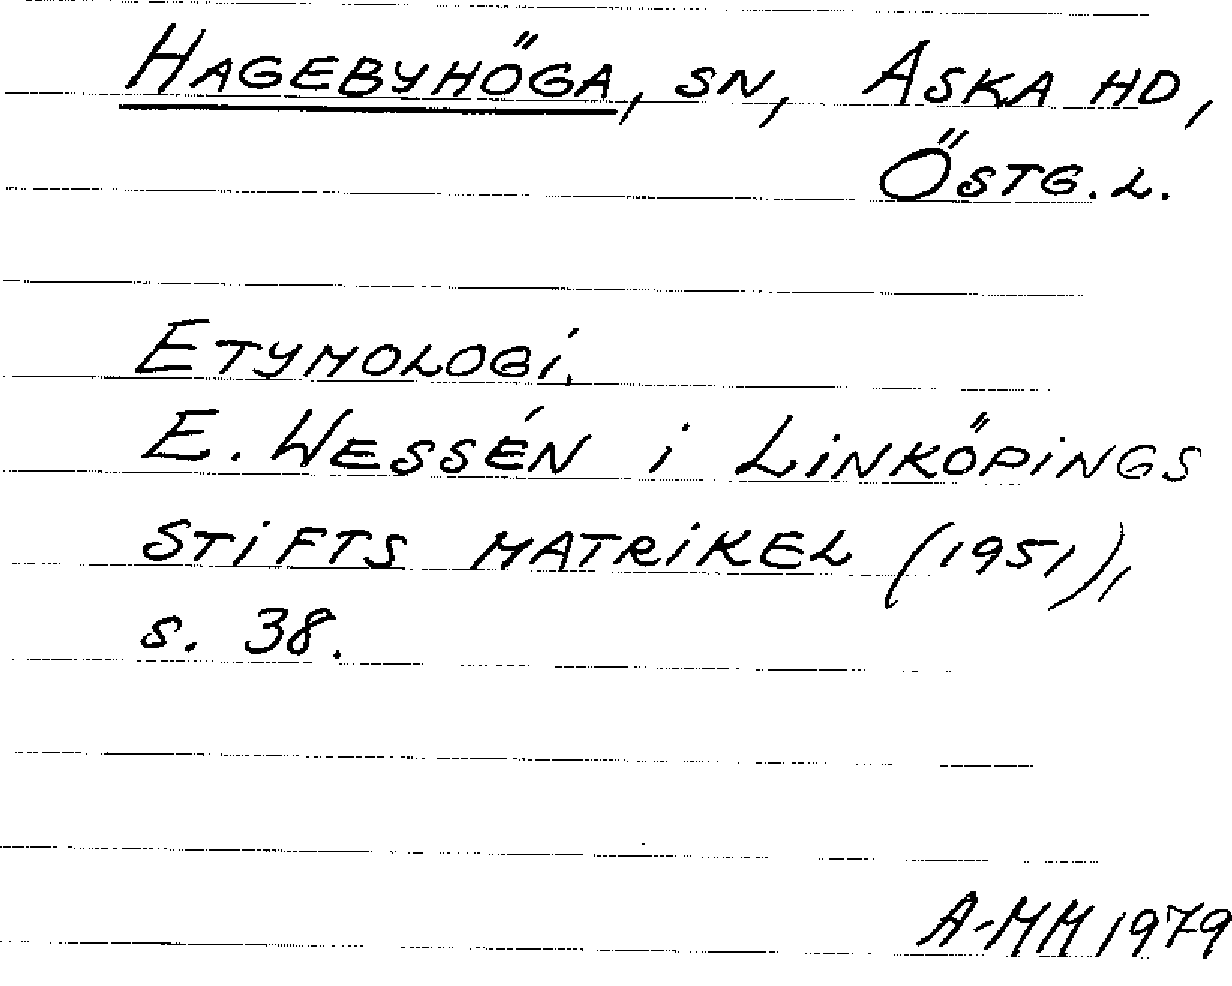 HAGEBYHÖGA, SN, ASKA HD,
ÖSTG. L.
ETYMOLOGI.
E. WESSÉN I LINKÖPINGS
STIFTS MATRIKEL (1951),
S. 38.
A-MM 1979